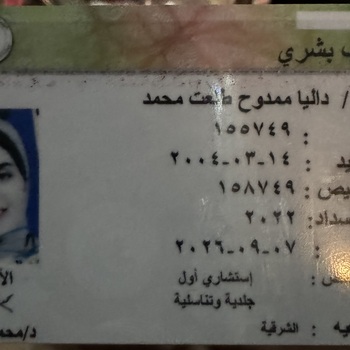 ب بشري
/ داليا ممدوح طلعت محمد
: ١٥٥٧٤٩
يد : ١٤-٠٣-٢٠٠٤
يص : ١٥٨٧٤٩
سداد: ٢٠٢٢
: ٠٧-٠٩-٢٠٢٦
ص : إستشاري أول
جلدية وتناسلية
يه : الشرقية
الأ
د/محمد